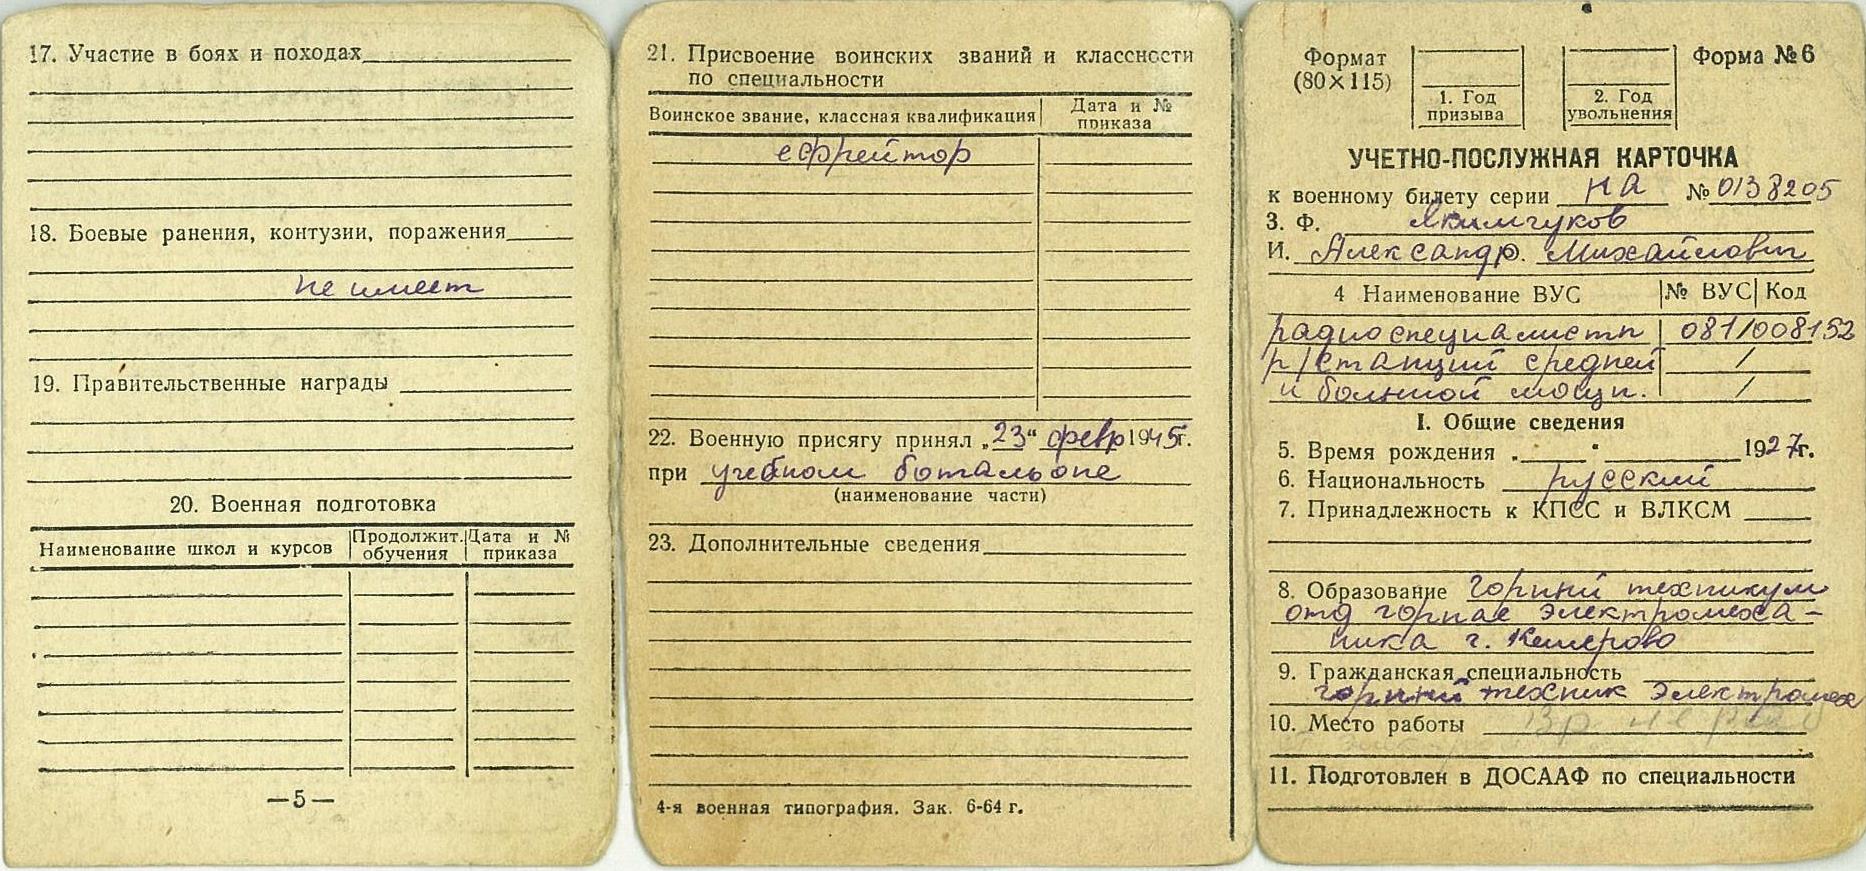 17. Участие в боях и походах
18. Боевые ранения, контузии, поражения
не имеет
19. Правительственные награды
20. Военная подготовка
Наименование школ и курсов
Продолжит. обучения
Дата и № приказа
—5—
21. Присвоение воинских званий и классности
по специальности
Воинское звание, классная квалификация
Дата и № приказа
ефрейтор
22. Военную присягу принял „23“ февр 1945г.
при учебном батальоне
(наименование части)
23. Дополнительные сведения
4-я военная типография. Зак. 6-64 г.
Формат
(80×115)
1. Год
призыва
2. Год
увольнения
Форма №6
УЧЕТНО-ПОСЛУЖНАЯ КАРТОЧКА
к военному билету серии НА № 0138205
3. Ф. Якимчуков
И. Александр. Михайлович
4 Наименование ВУС № ВУС Код
радиоспециалисты 081/008152
р/станций средней /
и большой мощн. /
I. Общие сведения
5. Время рождения „ “ 1927г.
6. Национальность русский
7. Принадлежность к КПСС и ВЛКСМ
8. Образование горный техникум
отд горная электромеха-
ника г. Кемерово
9. Гражданская специальность
горный техник электромех
10. Место работы Вр. не раб
11. Подготовлен в ДОСААФ по специальности